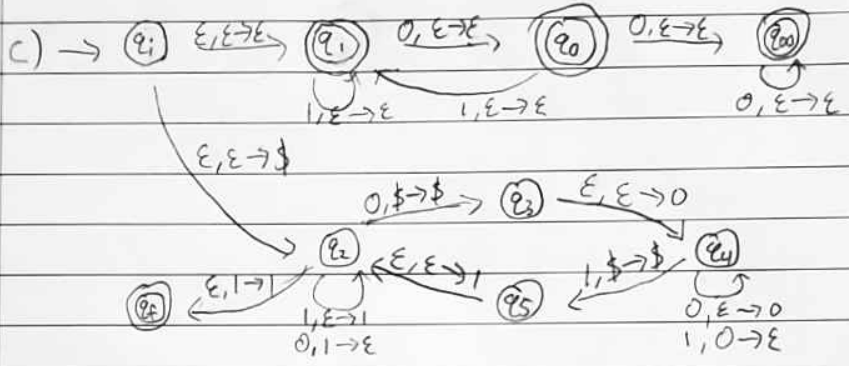 c) → qi ε,ε→ε q1 0,ε→ε q0 0,ε→ε q00
1,ε→ε 1,ε→ε 0,ε→ε
ε,ε→$
0,$→$ q3 ε,ε→0
q2 ε,ε→1 1,$→$ q4
qf ε,1→1 q5
1,ε→1 0,ε→0
0,1→ε 1,0→ε